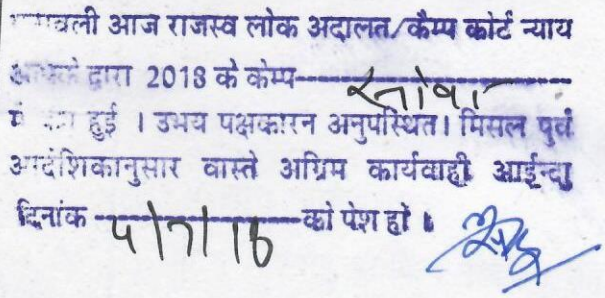 पत्रावली आज राजस्व लोक अदालत/कैम्प कोर्ट न्याय
आपके द्वारा 2018 के केम्प
में पेश हुई । उभय पक्षकारन अनुपस्थित। मिसल पुर्व
आदेशिकानुसार वास्ते अग्रिम कार्यवाही आईन्दा
दिनांक 4/7/18 को पेश हो ।